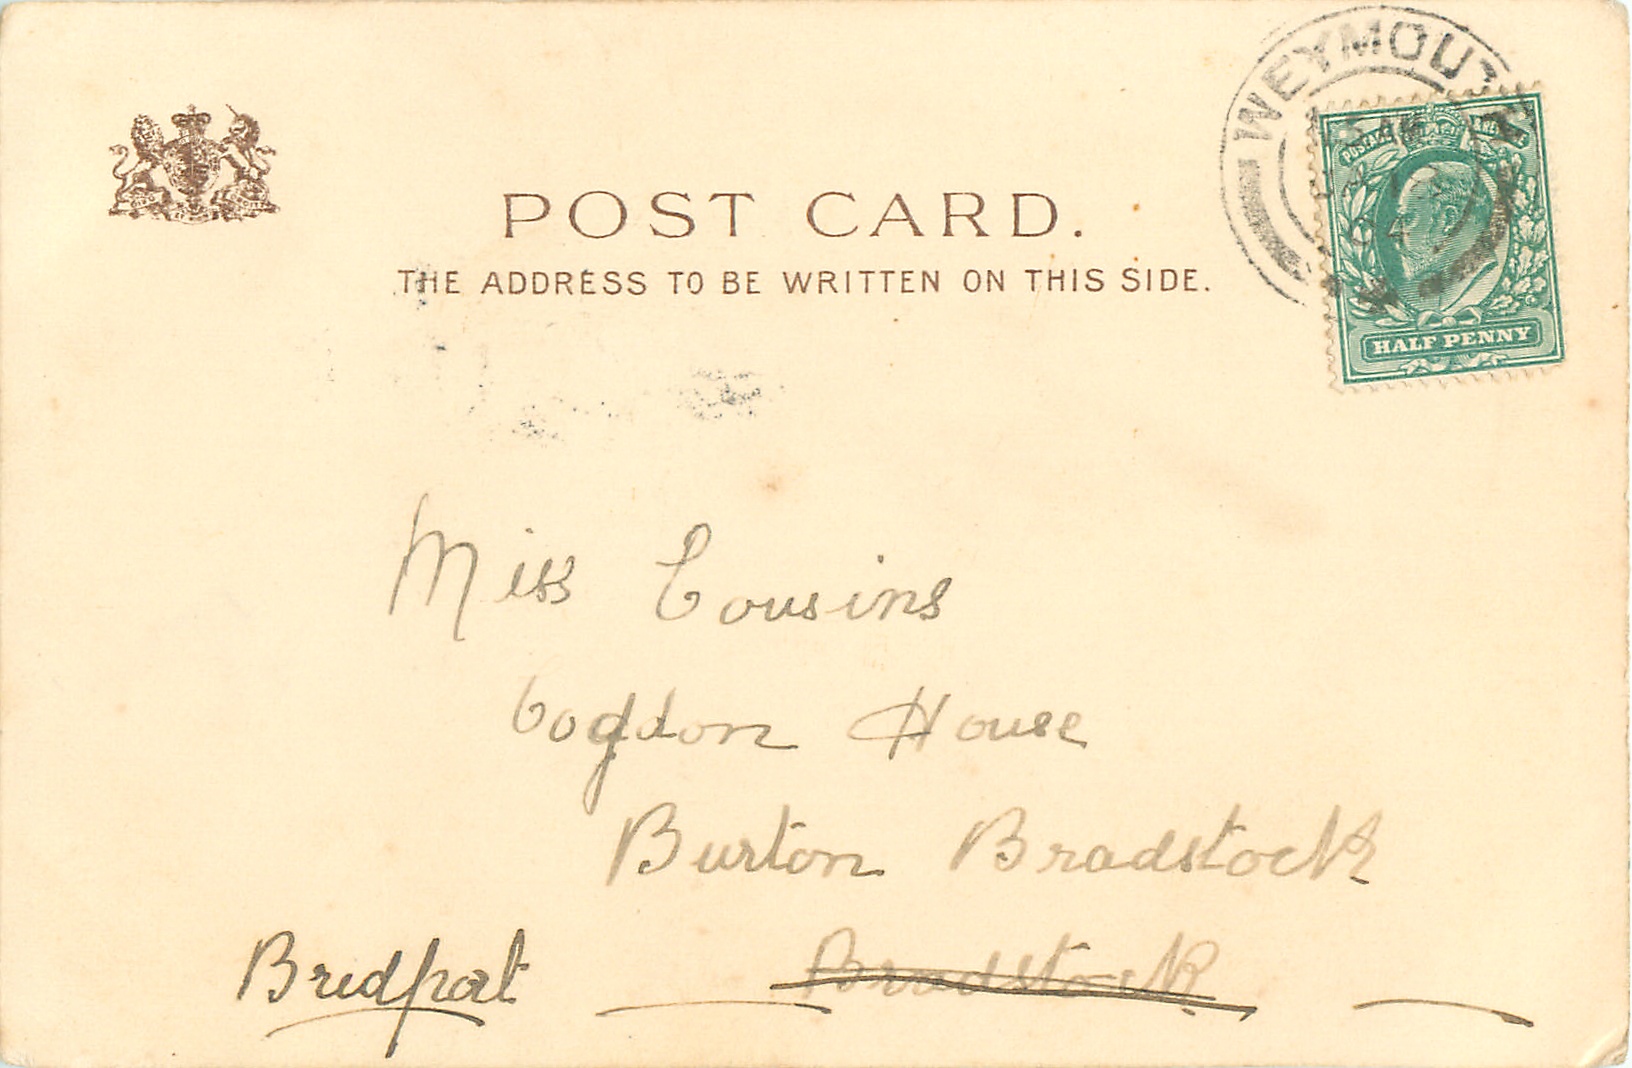 WEYMOUTH
POSTAGE & REVENUE
HALF PENNY
POST CARD.
THE ADDRESS TO BE WRITTEN ON THIS SIDE.
Miss Cousins
Cogdon House
Burton Bradstock
Bridport Bradstock